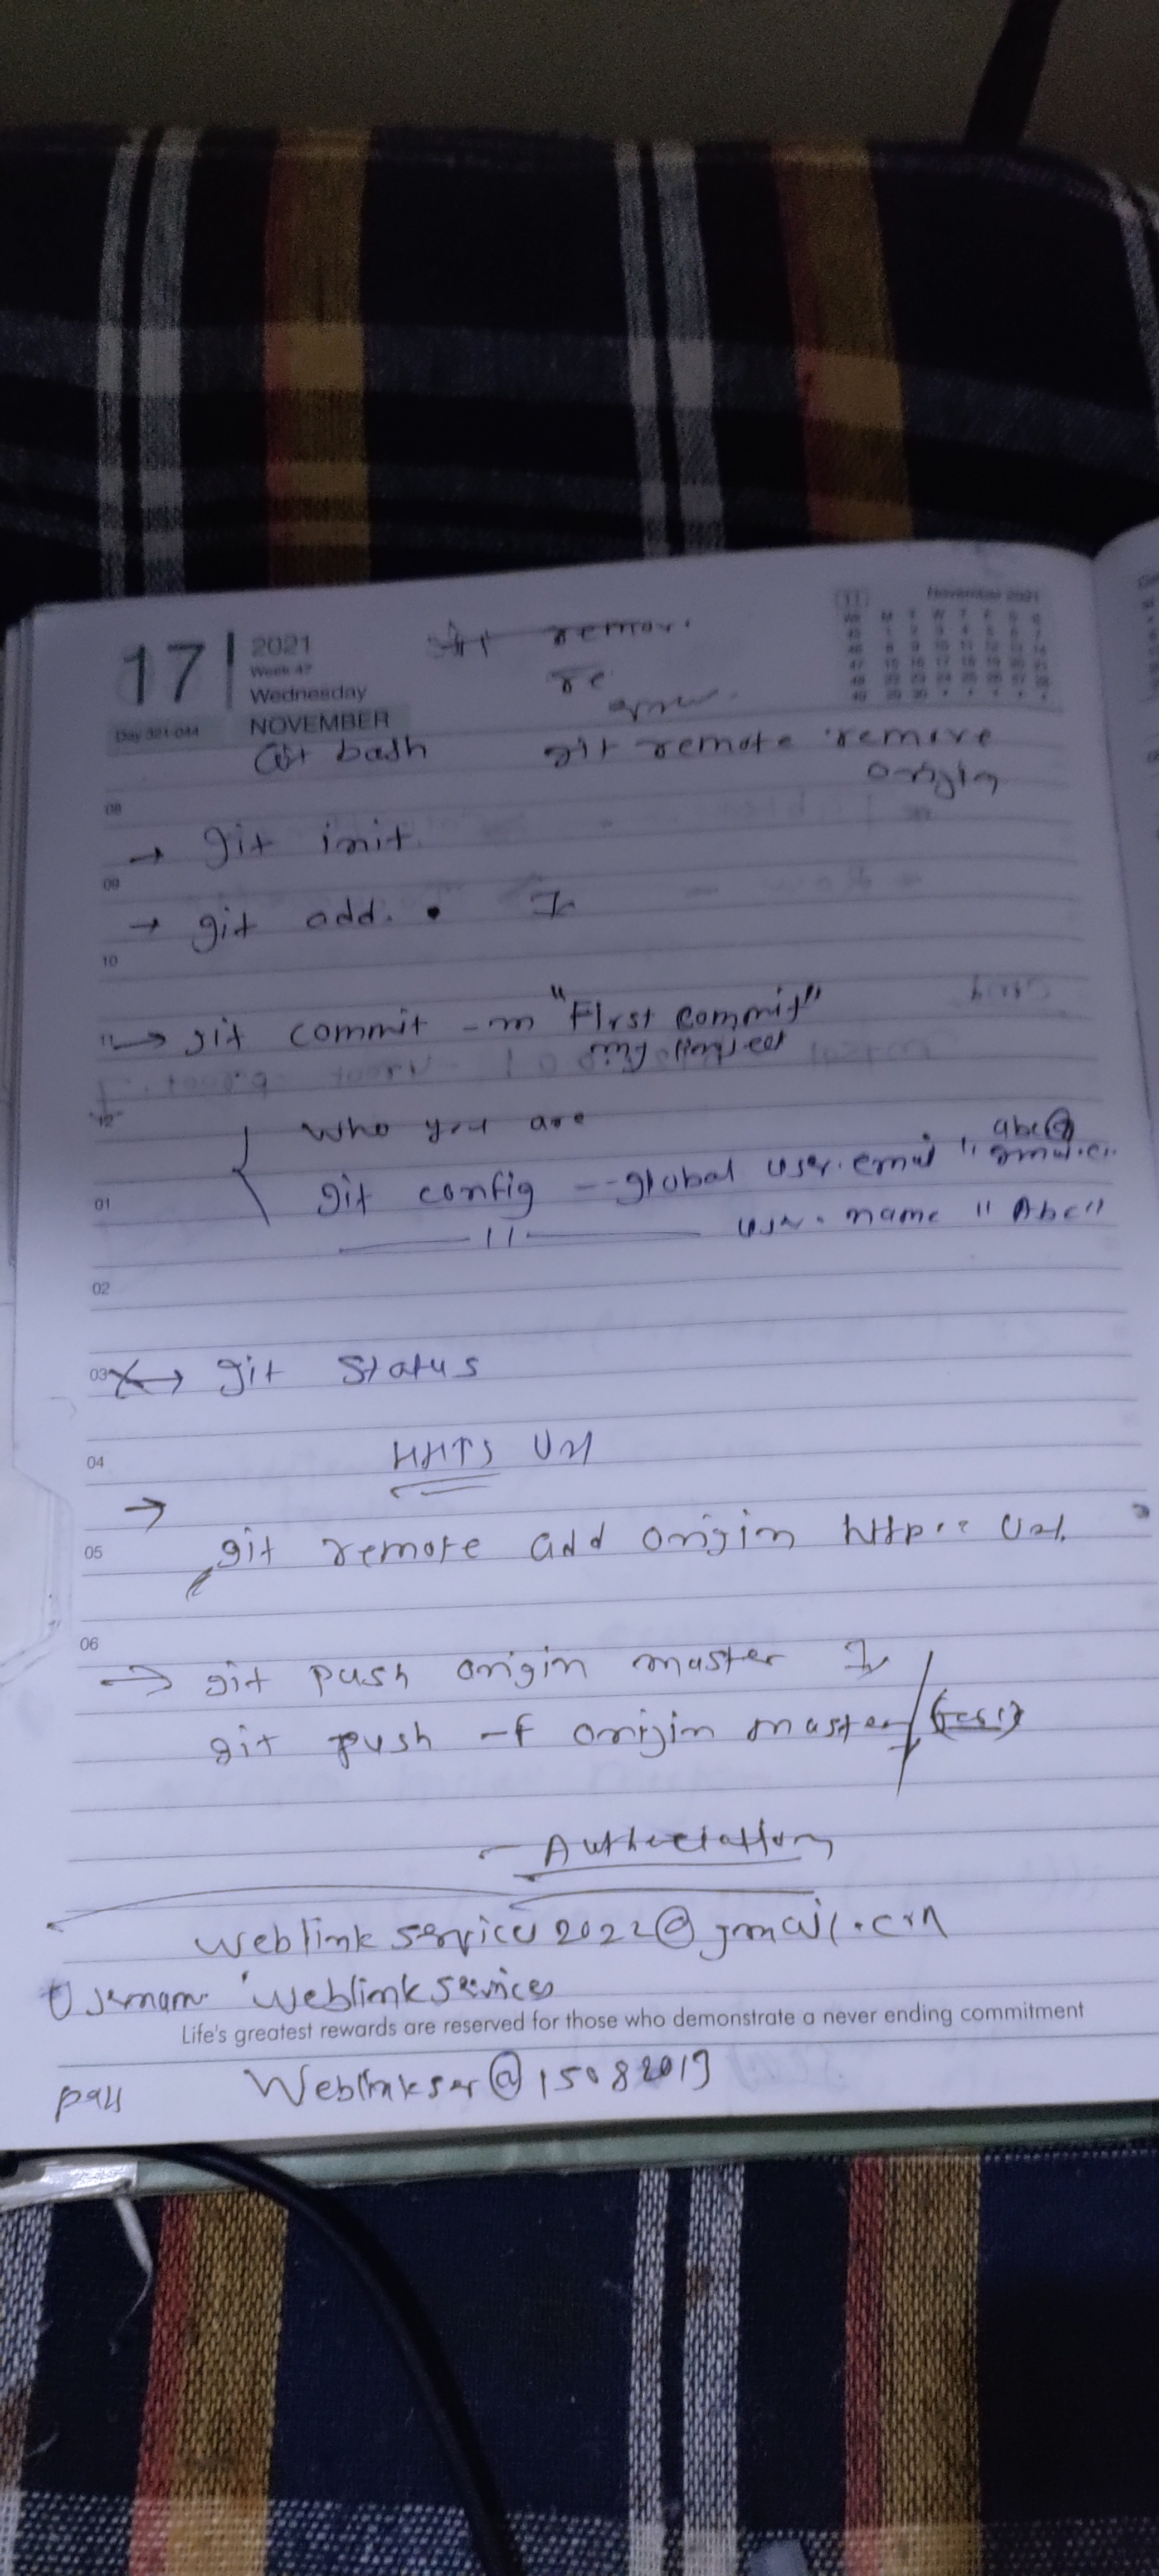 17
2021
Week 47
Wednesday
NOVEMBER
Day 321-044
November 2021
remov.
re
Git bash
git remote remove
origin
08
→ git init
09
→ git add. •
10
11 → git commit -m "First commit"
my Project
12
Who you are
01
git config --global user.email "abc@gmail.c..
—— 11 —— user.name "Abc"
02
03 → git status
04
HHTS Url
→
05
git remote add origin http:: Url.
06
→ git push origin master
git push -f origin master
weblink services2022@gmail.com
Usernam. weblinkservices
Life's greatest rewards are reserved for those who demonstrate a never ending commitment
pass Weblinkser@15082019